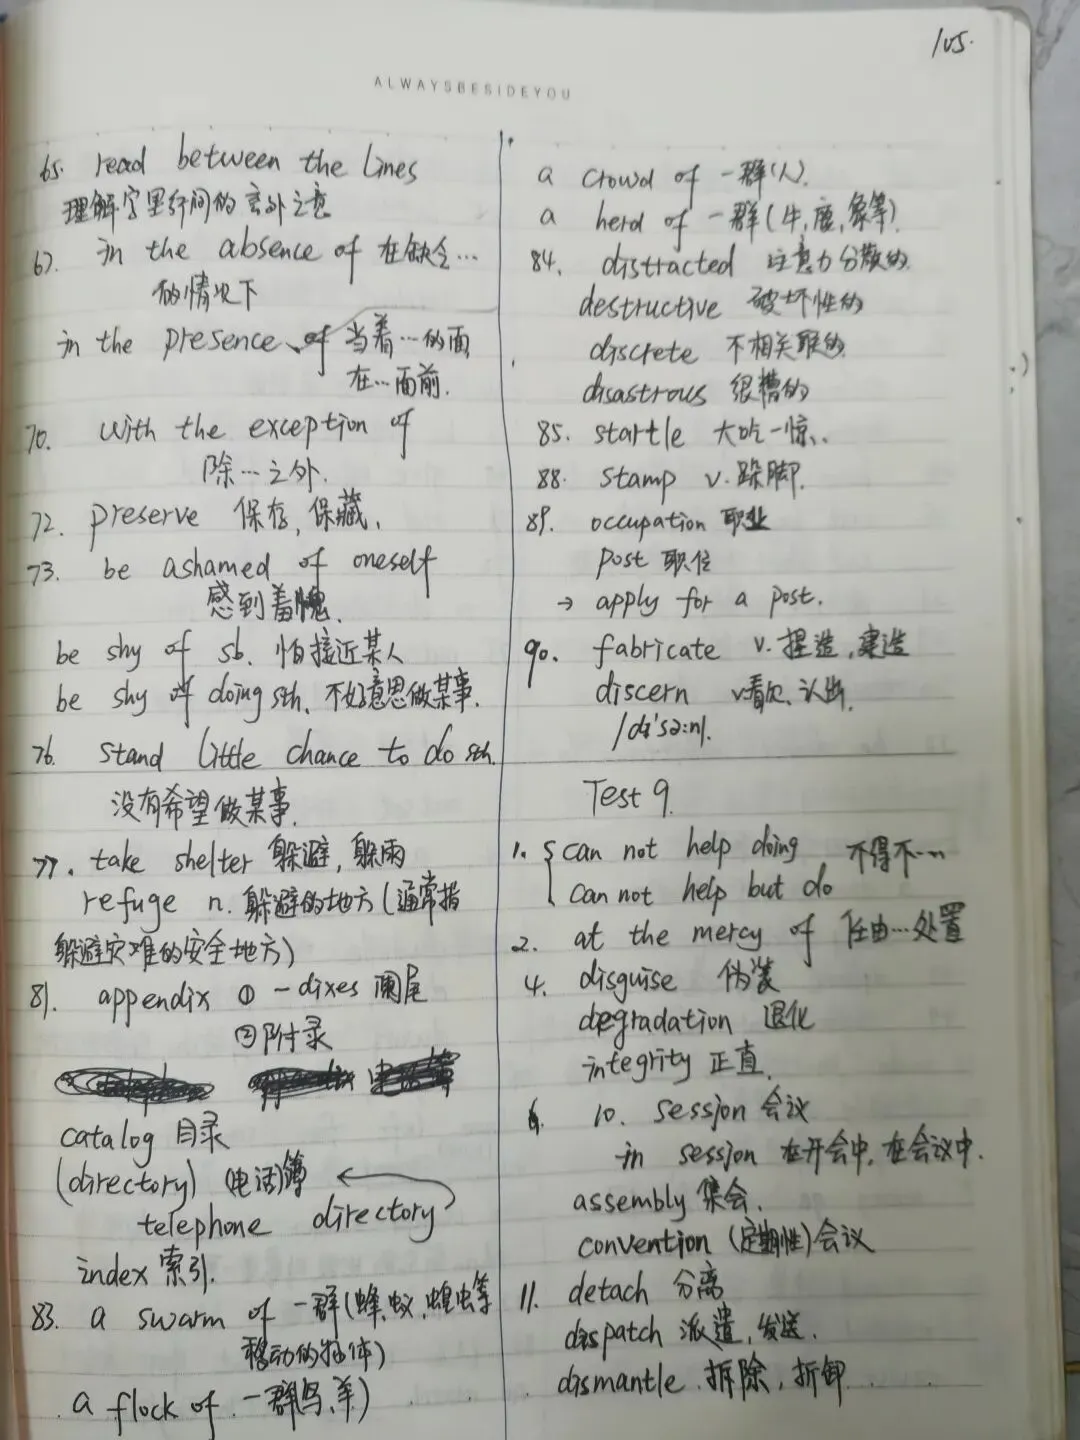 105.
ALWAYSBESIDEYOU
65. read between the lines
理解字里行间的言外之意
67. in the absence of 在缺乏…
的情况下
in the presence of 当着…的面
在…面前.
70. with the exception of
除…之外.
72. preserve 保存,保藏.
73. be ashamed of oneself
感到羞愧.
be shy of sb. 怕接近某人
be shy of doing sth. 不好意思做某事.
76. stand little chance to do sth.
没有希望做某事.
77. take shelter 躲避,躲雨
refuge n. 躲避的地方(通常指
躲避灾难的安全地方)
81. appendix ① -dixes 阑尾
②附录
catalog 目录
(directory) (电话)簿
telephone directory
index 索引.
83. a swarm of 一群(蜂,蚁,蝗虫等
移动的物体)
a flock of 一群(鸟,羊)
a crowd of 一群(人).
a herd of 一群(牛,鹿,象等).
84. distracted 注意力分散的.
destructive 破坏性的
discrete 不相关联的.
disastrous 很糟的
85. startle 大吃一惊.
88. stamp v.跺脚.
89. occupation 职业
post 职位
→ apply for a post.
90. fabricate v.捏造,建造
discern v.看见.认出.
/dɪ'sə:n/.
Test 9.
1. { can not help doing 不得不…
can not help but do
2. at the mercy of 任由…处置
4. disguise 伪装
degradation 退化
integrity 正直.
10. session 会议
in session 在开会中,在会议中.
assembly 集会.
convention (定期性)会议
11. detach 分离
dispatch 派遣,发送.
dismantle 拆除,拆卸.